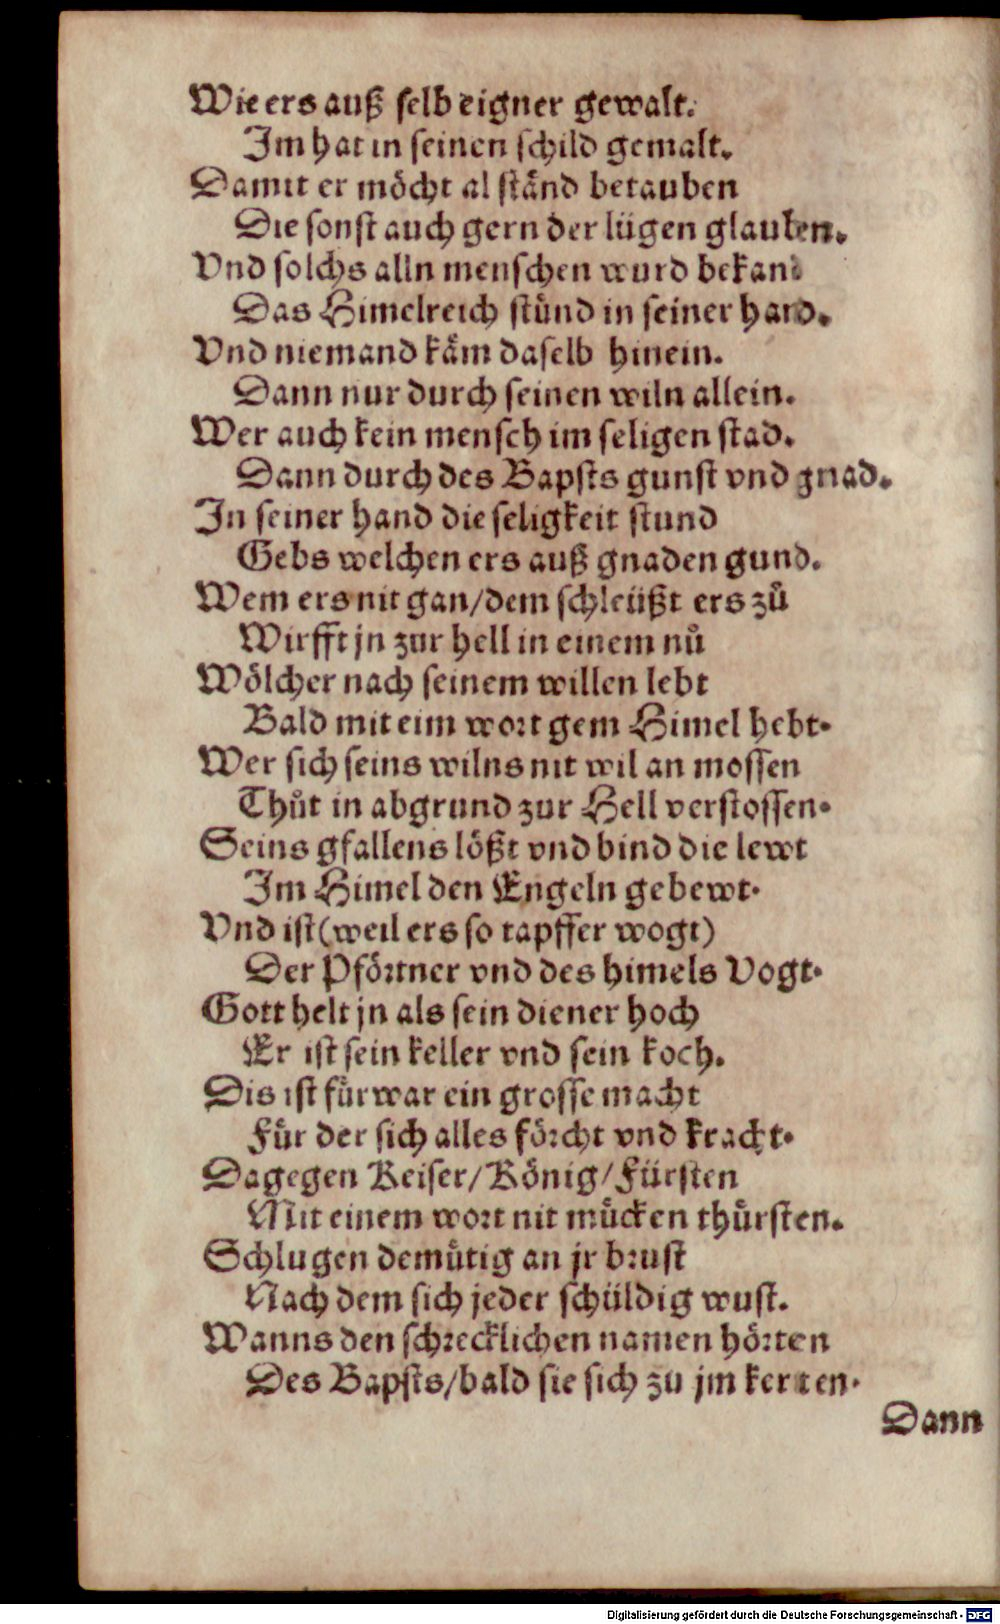 Wie ers auß selb eigner gewalt.
Im hat in seinen schild gemalt.
Damit er möcht al ständ betauben
Die sonst auch gern der lügen glauben.
Vnd solchs alln menschen wurd bekant
Das Himelreich stünd in seiner hand.
Vnd niemand käm daselb hinein.
Dann nur durch seinen wiln allein.
Wer auch kein mensch im seligen stad.
Dann durch des Bapsts gunst vnd gnad.
In seiner hand die seligkeit stund
Gebs welchen ers auß gnaden gund.
Wem ers nit gan/dem schleüßt ers zů
Wirfft jn zur hell in einem nů
Wölcher nach seinem willen lebt
Bald mit eim wort gem Himel hebt.
Wer sich seins wilns nit wil an mossen
Thůt in abgrund zur Hell verstossen.
Seins gfallens lößt vnd bind die lewt
Im Himel den Engeln gebewt.
Vnd ist (weil ers so tapffer wogt)
Der Pförtner vnd des himels Vogt.
Gott helt jn als sein diener hoch
Er ist sein keller vnd sein koch.
Dis ist fürwar ein grosse macht
Für der sich alles förcht vnd kracht.
Dagegen Keiser/König/Fürsten
Mit einem wort nit mücken thürsten.
Schlugen demütig an jr brust
Nach dem sich jeder schüldig wust.
Wanns den schrecklichen namen hörten
Des Bapsts/bald sie sich zu jm kerten.
Dann
Digitalisierung gefördert durch die Deutsche Forschungsgemeinschaft - DFG